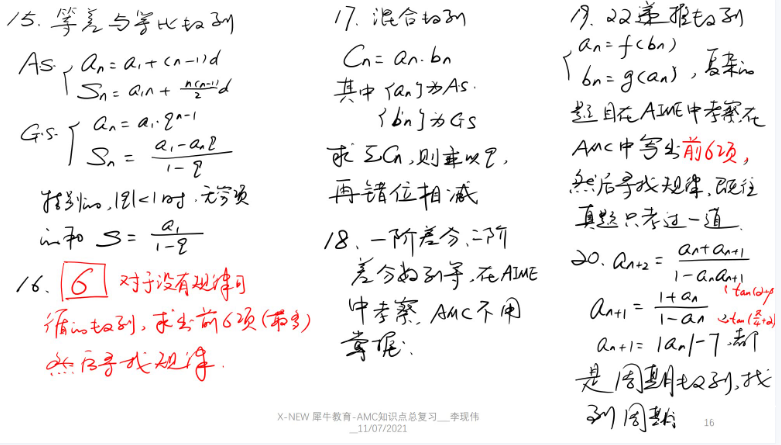 15. 等差与等比数列
As. { an = a1 + (n-1)d
Sn = a1n + n(n-1)/2 d
G.S. { an = a1·q^(n-1)
Sn = (a1 - anq)/(1-q)
特别的, |q|<1时, 无穷项
的和 S = a1/(1-q)
16. 6 对于没有规律可
循的数列, 求出前6项(最多)
然后寻找规律.
17. 混合数列
Cn = an·bn
其中{an}为As.
{bn}为GS
求ΣCn, 则乘以q,
再错位相减
18. 一阶差分、二阶
差分数列等, 在AIME
中考察, AMC不用
掌握.
19. 22递推数列
{ an = f(bn)
bn = g(an) , 复杂的
题目在AIME中考察在
AMC中写出前6项,
然后寻找规律, 既往
真题只考过一道.
20. an+2 = (an + an+1)/(1 - an an+1)
: tan(α+β)
an+1 = (1+an)/(1-an)
: tan(π/4+α)
an+1 = |an| - 7, 都
是周期数列, 找
到周期
X-NEW 犀牛教育-AMC知识点总复习__李现伟
__11/07/2021
16